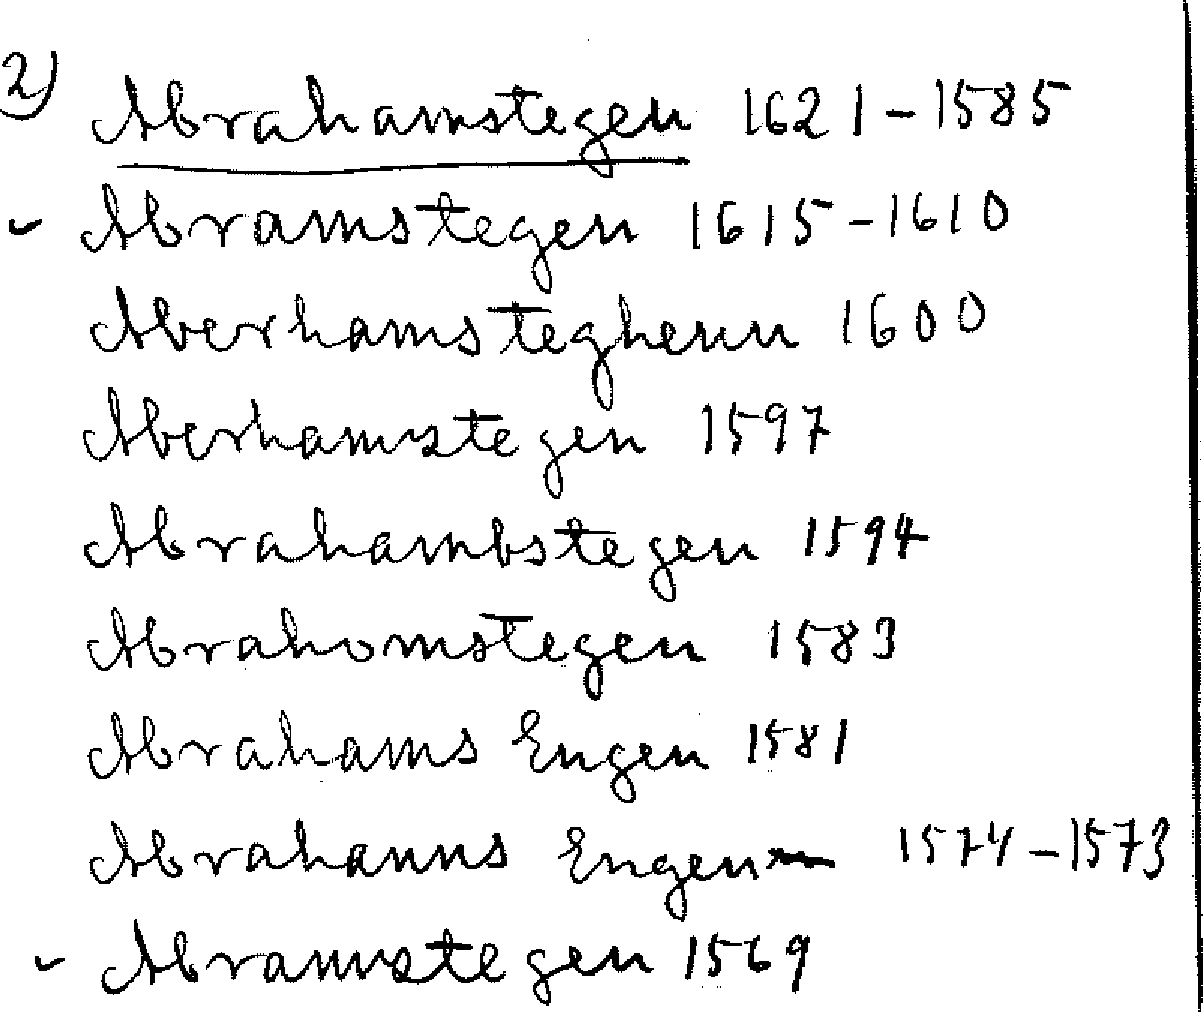 2) Abrahamstegen 1621-1585
Abramstegen 1615-1610
Aberhamsteghenn 1600
Aberhamstegen 1597
Abrahambstegen 1594
Abrahomstegen 1583
Abrahams Engen 1581
Abrahanns Engen 1574-1573
Abramstegen 1569